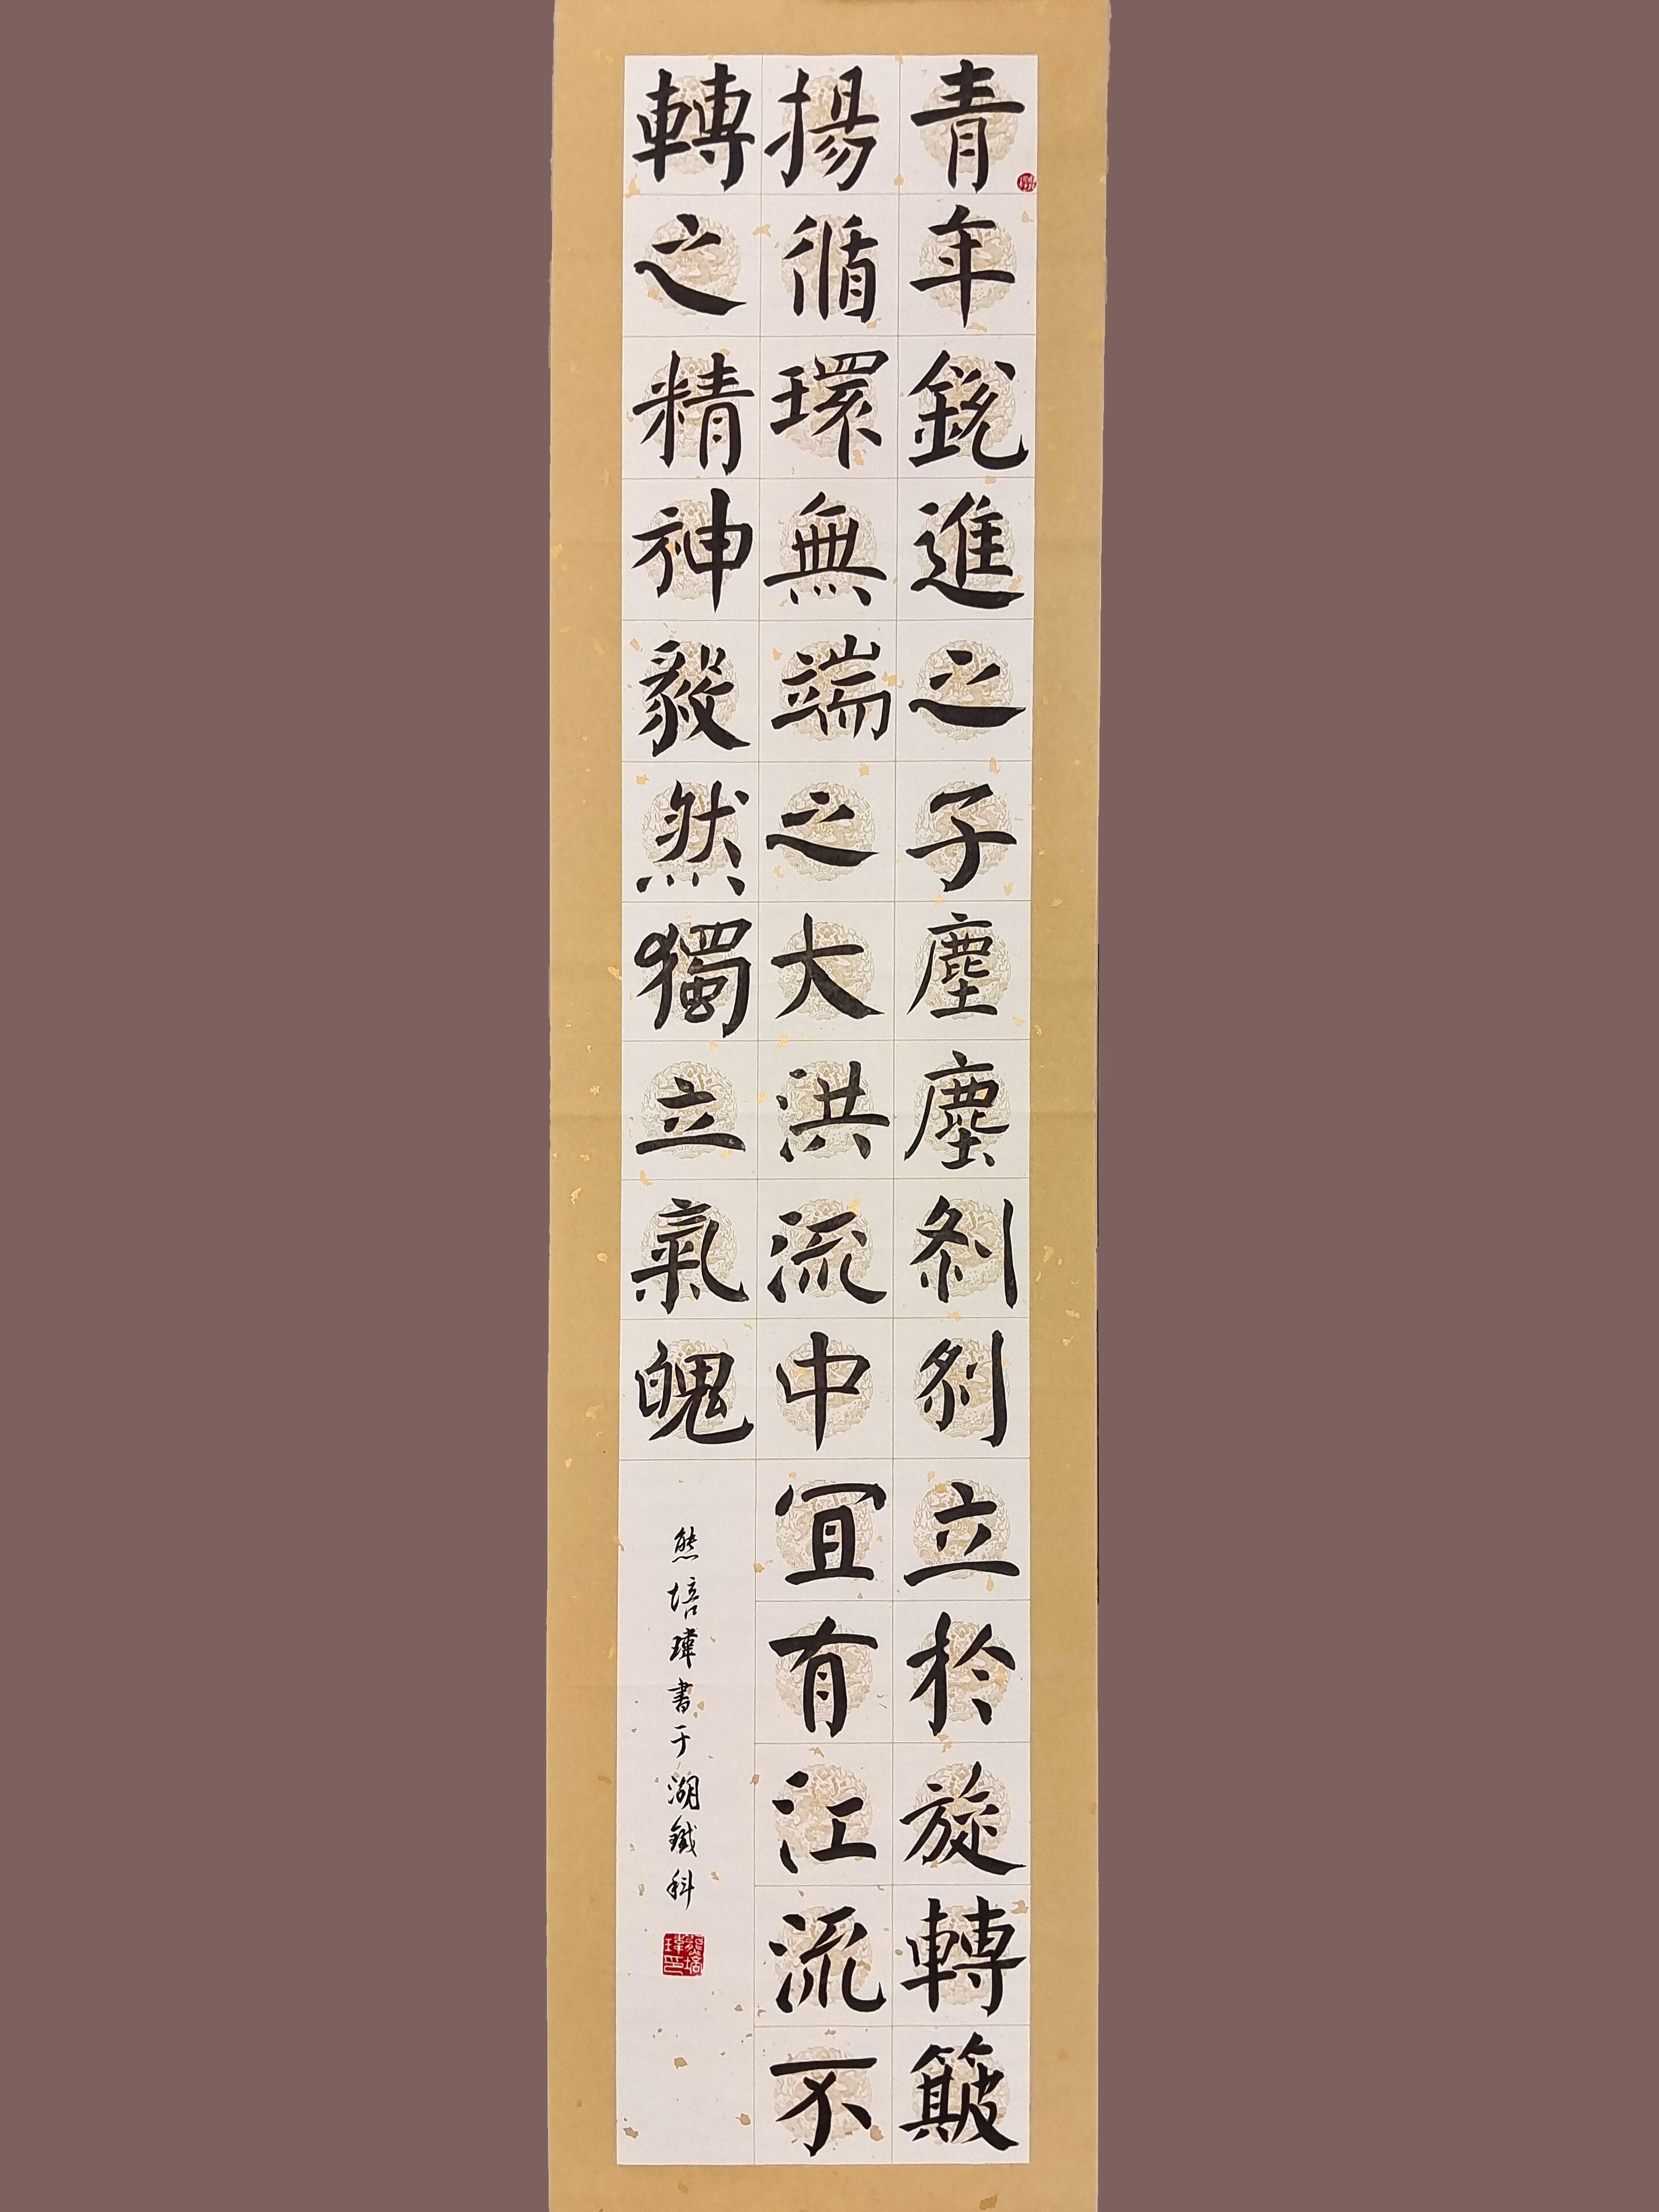 青年銳進之子塵塵刹刹立於旋轉簸
揚循環無端之大洪流中宜有江流不
轉之精神毅然獨立氣魄
熊培瑋書于湖鐵科
熊培瑋印